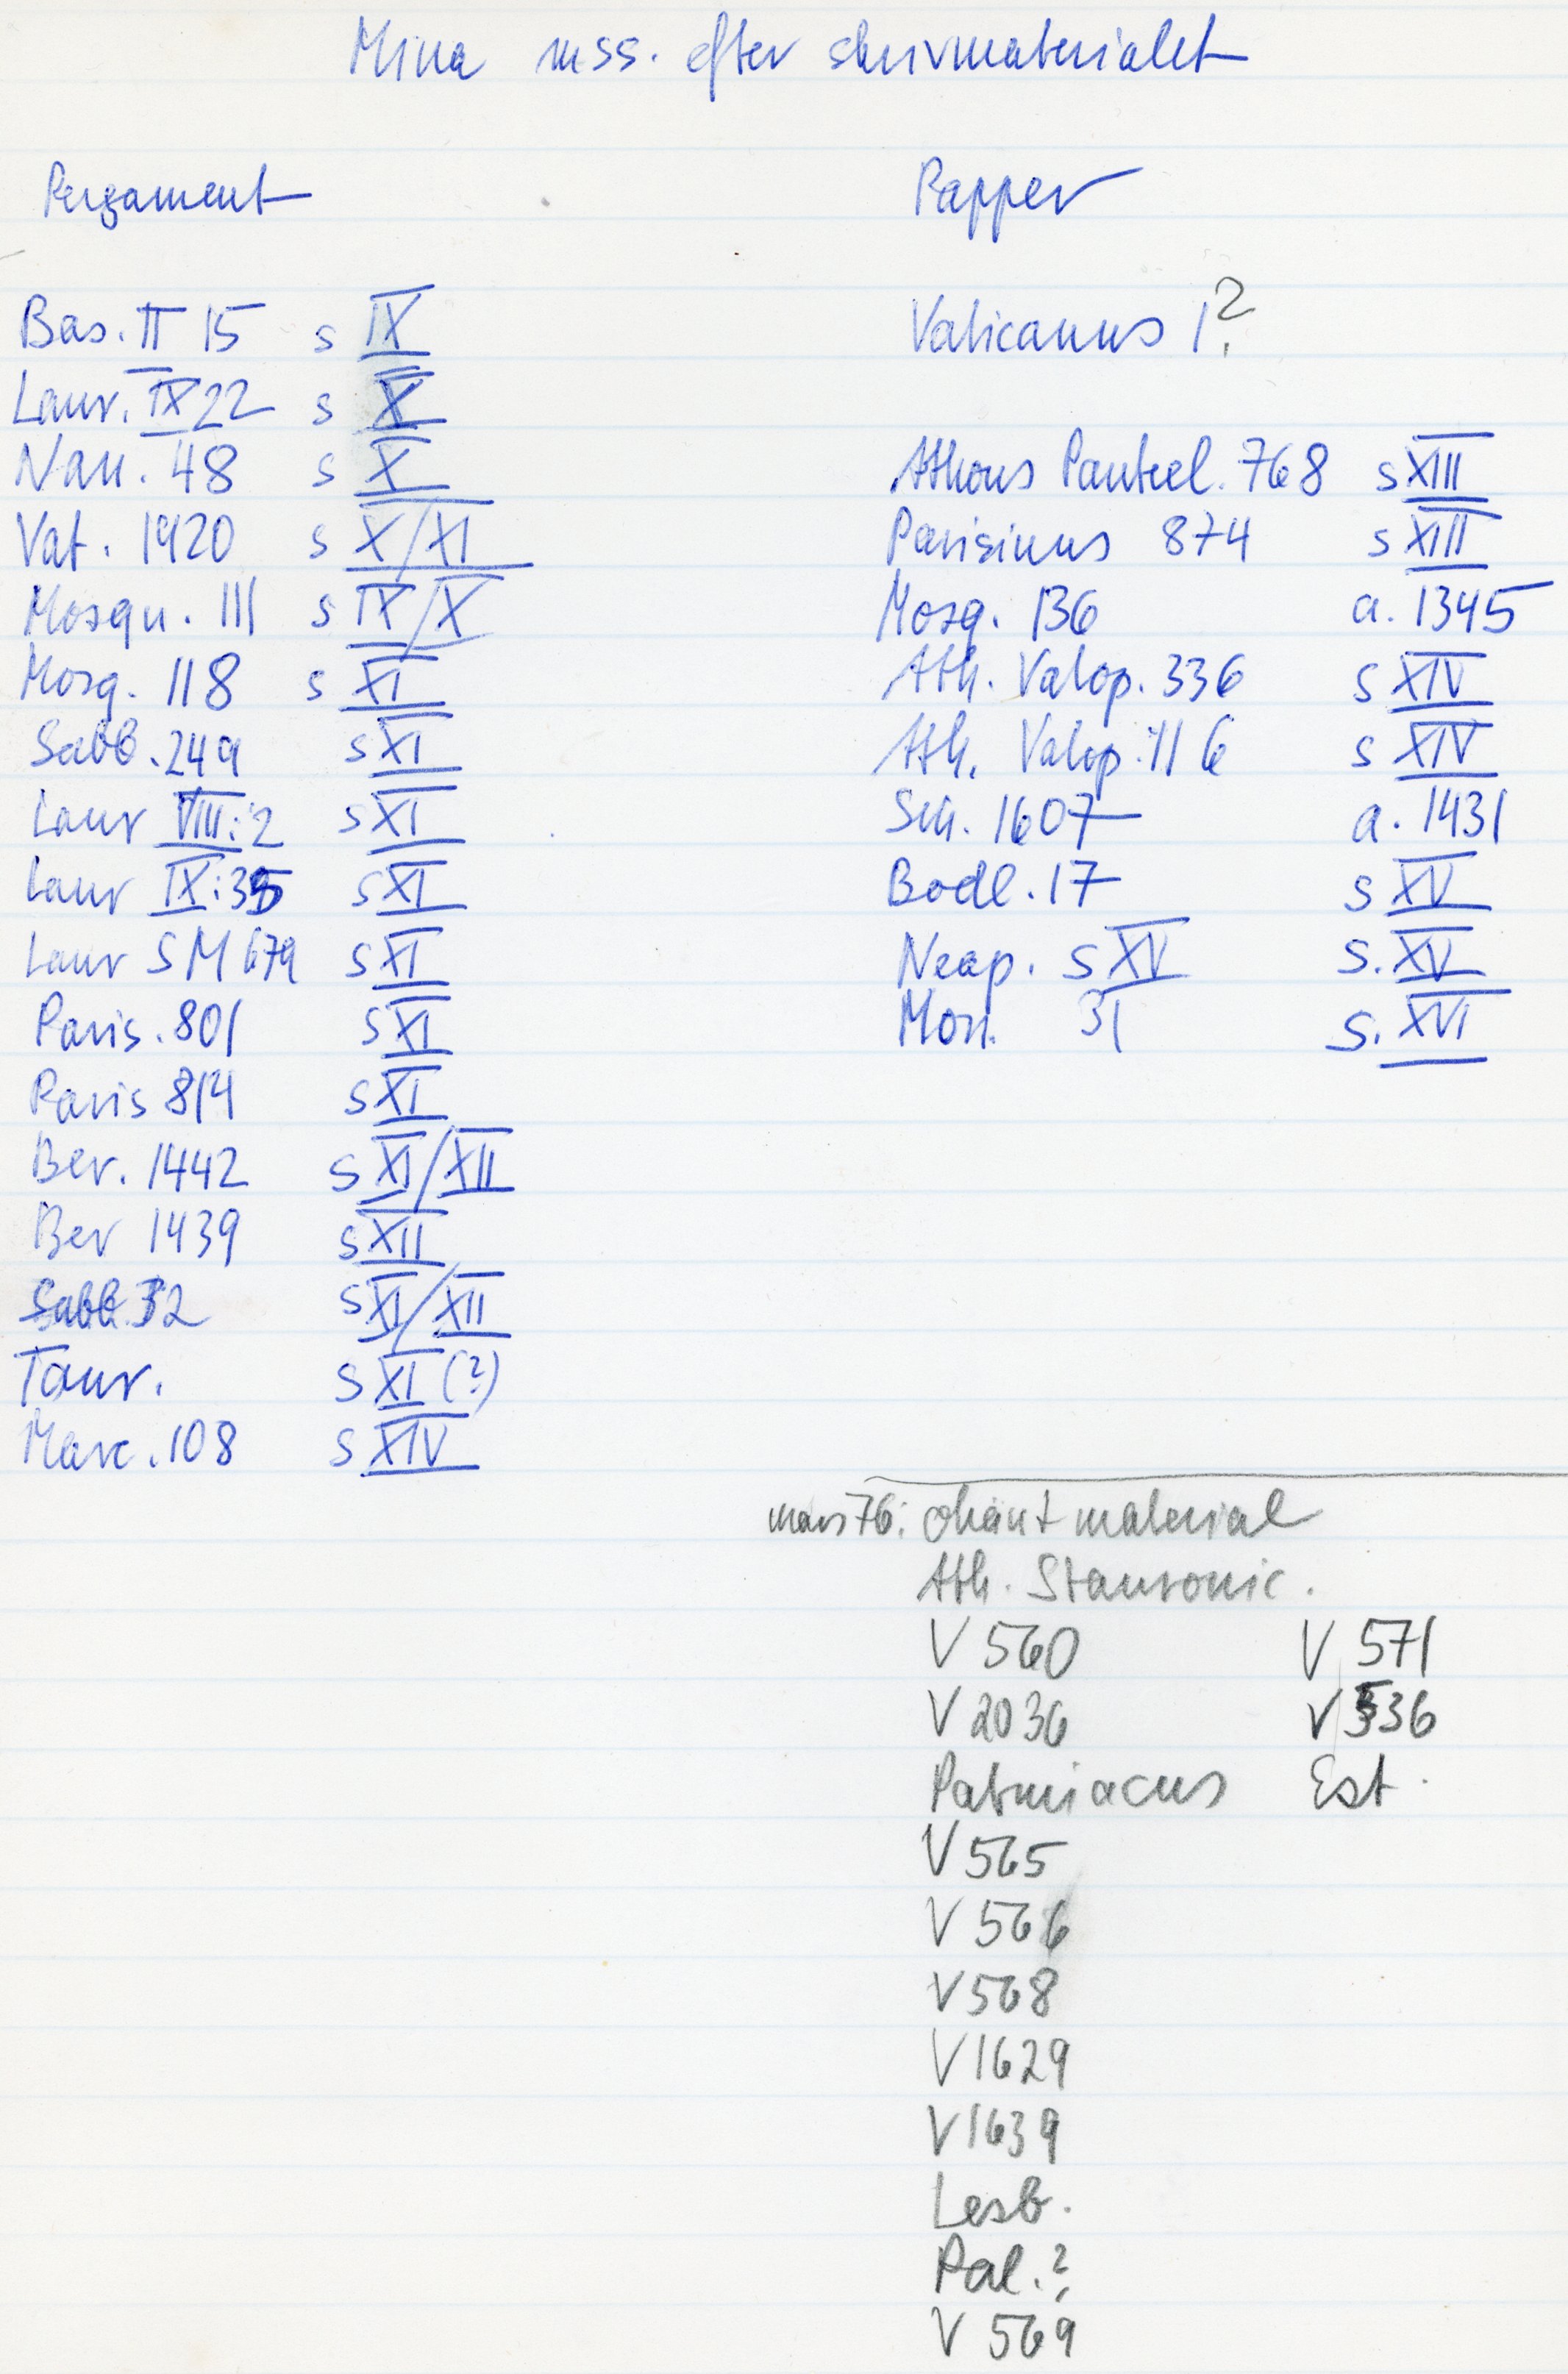 Mina mss. efter skrivmaterialet
Pergament
Bas. II 15 s IX
Laur. IX 22 s X
Nan. 48 s X
Vat. 1920 s X/XI
Mosqu. 111 s IX/X
Mosq. 118 s XI
Sabb. 249 s XI
Laur VIII:2 s XI
Laur IX:35 s XI
Laur S M 679 s XI
Paris. 801 s XI
Paris 814 s XI
Ber. 1442 s XI/XII
Ber 1439 s XII
Sabb. 32 s XI/XII
Taur. s XI (?)
Marc. 108 s XIV
Papper
Vaticanus 1?
Athous Pantel. 768 s XIII
Parisinus 874 s XIII
Mosq. 136 a. 1345
Ath. Vatop. 336 s XIV
Ath. Vatop. 116 s XIV
Sin. 1607 a. 1431
Bodl. 17 s XV
Neap. s XV s. XV
Mon. 31 s. XVI
mars 76: okänt material
Ath. Stauronic.
V 560 V 571
V 2036 V 536
Patmiacus Est.
V 565
V 566
V 568
V 1629
V 1639
Lesb.
Pal.?
V 569